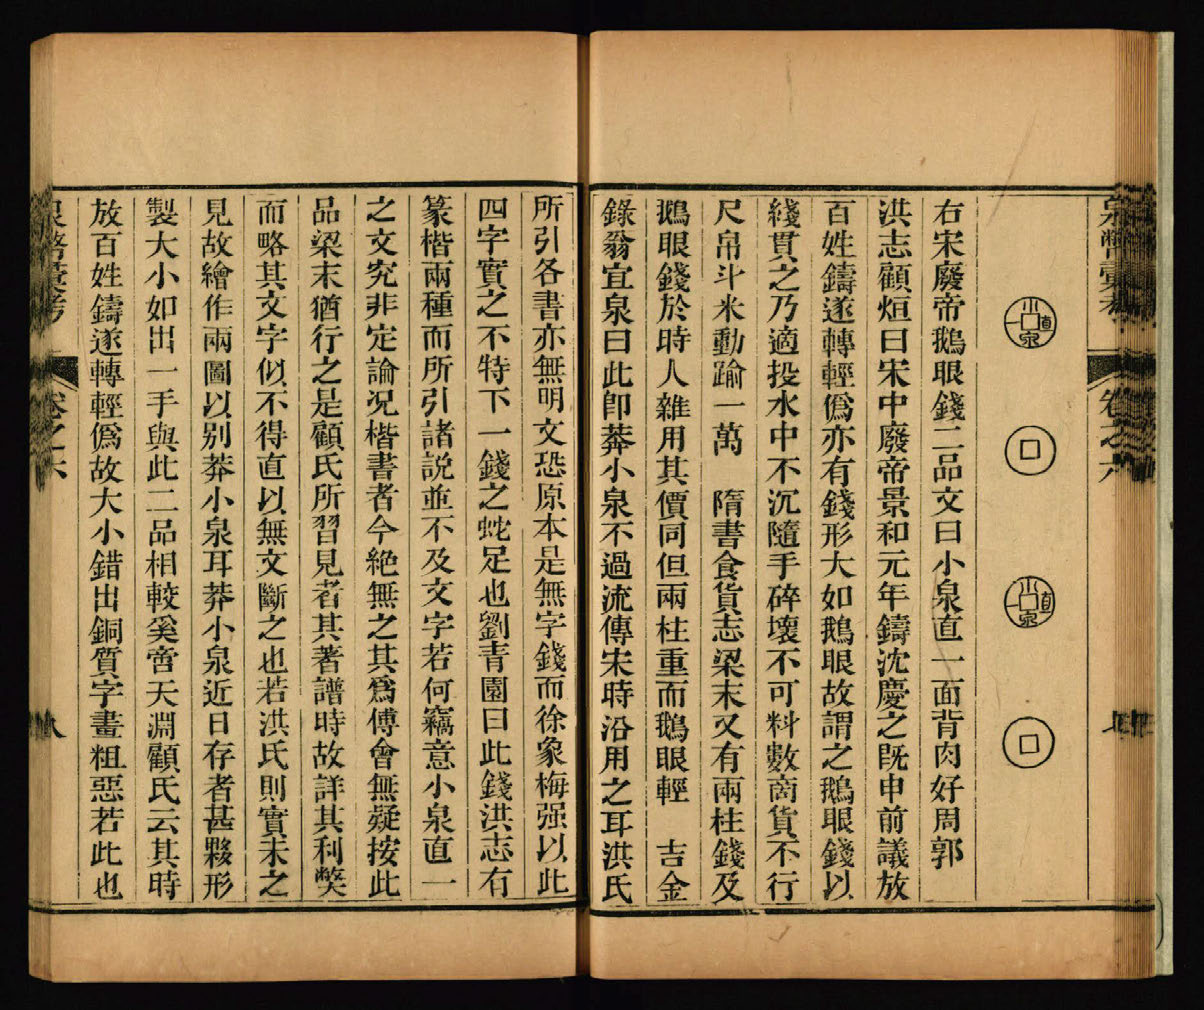 泉幣彙考
卷之六
小泉直一
小泉直一
右宋廢帝鵝眼錢二品文曰小泉直一面背肉好周郭
洪志顧烜曰宋中廢帝景和元年鑄沈慶之旣申前議放
百姓鑄遂轉輕僞亦有錢形大如鵝眼故謂之鵝眼錢以
綫貫之乃適投水中不沉隨手碎壞不可料數商貨不行
尺帛斗米動踰一萬　隋書食貨志梁末又有兩柱錢及
鵝眼錢於時人雜用其價同但兩柱重而鵝眼輕　吉金
錄翁宜泉曰此卽莽小泉不過流傳宋時沿用之耳洪氏
所引各書亦無明文恐原本是無字錢而徐象梅强以此
四字實之不特下一錢之蛇足也劉青園曰此錢洪志有
篆楷兩種而所引諸說並不及文字若何竊意小泉直一
之文究非定論況楷書者今絶無之其爲傅會無疑按此
品梁末猶行之是顧氏所習見者其著譜時故詳其利獘
而略其文字似不得直以無文斷之也若洪氏則實未之
見故繪作兩圖以别莽小泉耳莽小泉近日存者甚夥形
製大小如出一手與此二品相較奚啻天淵顧氏云其時
放百姓鑄遂轉輕僞故大小錯出銅質字畫粗惡若此也
泉幣彙考
卷之六
八